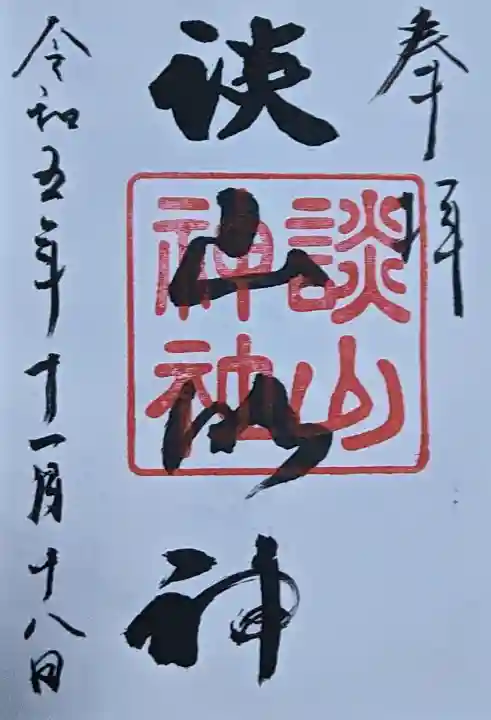 奉拝
談山明神
談山
神社
令和五年十一月十八日